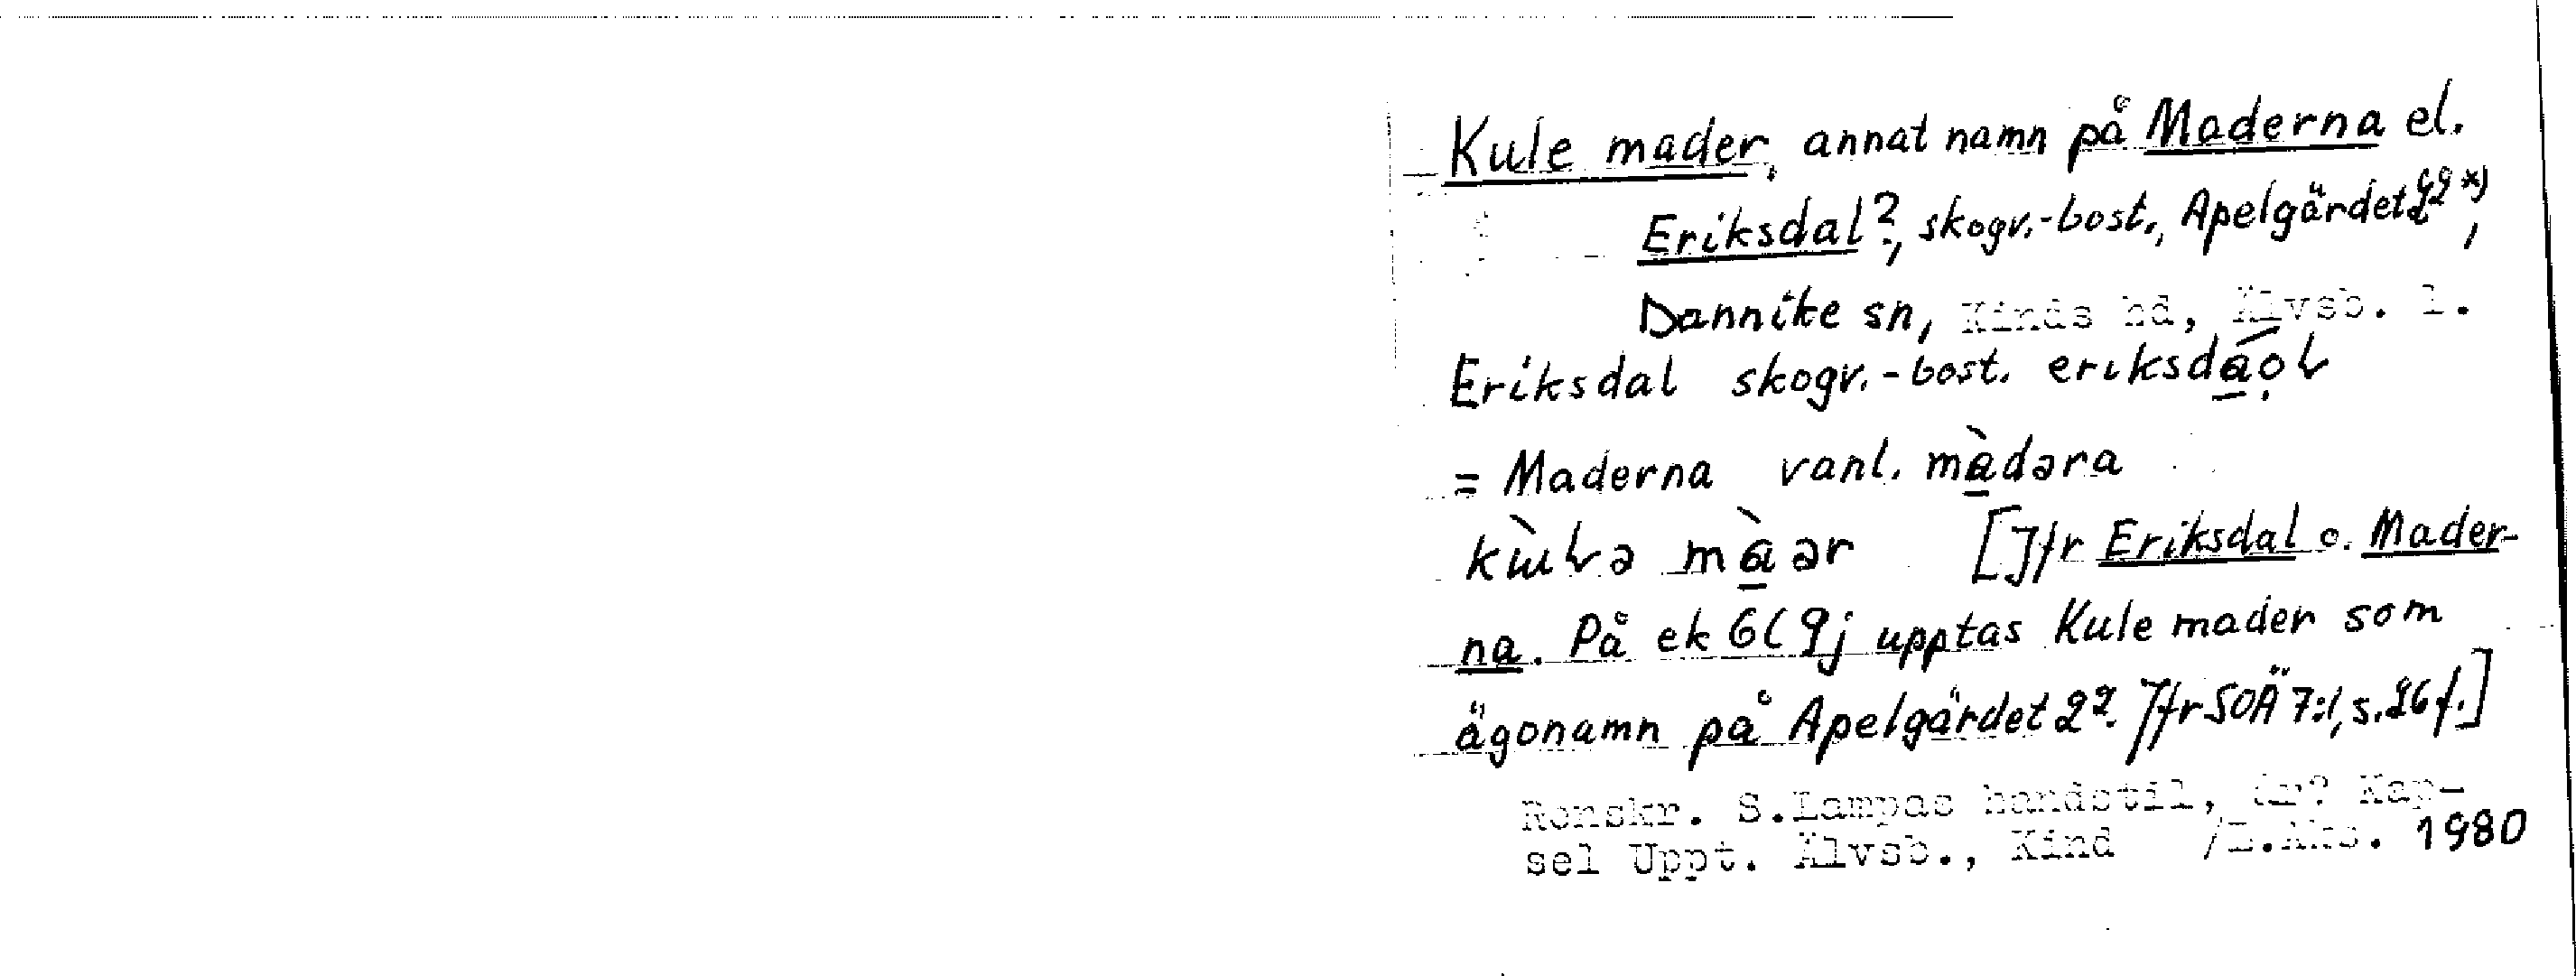 Kule mader, annat namn på Maderna el.
Eriksdal?, skogv.-bost., Apelgärdet 2² *),
Dannike sn, Kinds hd, Älvsb. l.
Eriksdal skogv.-bost.
= Maderna vanl. màdəra
màər [Jfr Eriksdal o. Mader-
na. På ek 6C9j upptas Kule mader som
ägonamn på Apelgärdet 2². Jfr SOÄ 7:1, s. 26 f.]
Renskr. S.Lampas handstil, år? Kap-
sel Uppt. Älvsb., Kind 1980